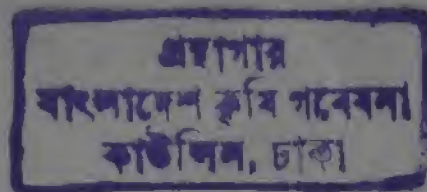 গ্রন্থাগার
বাংলাদেশ কৃষি গবেষনা
কাউন্সিল, ঢাকা